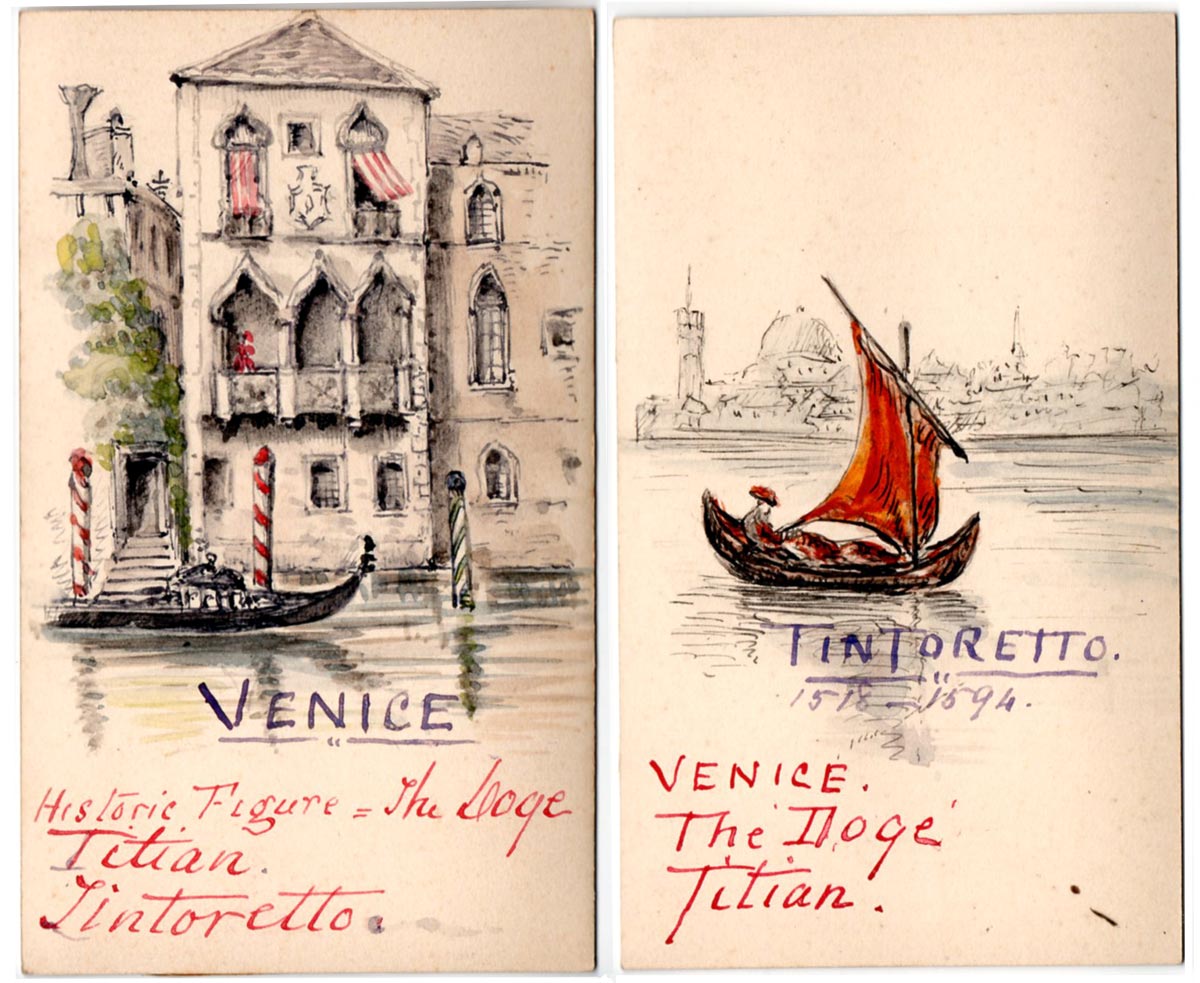 VENICE
Historic Figure = The Doge
Titian.
Tintoretto.
TINTORETTO.
1518 - 1594.
VENICE.
The Doge
Titian.